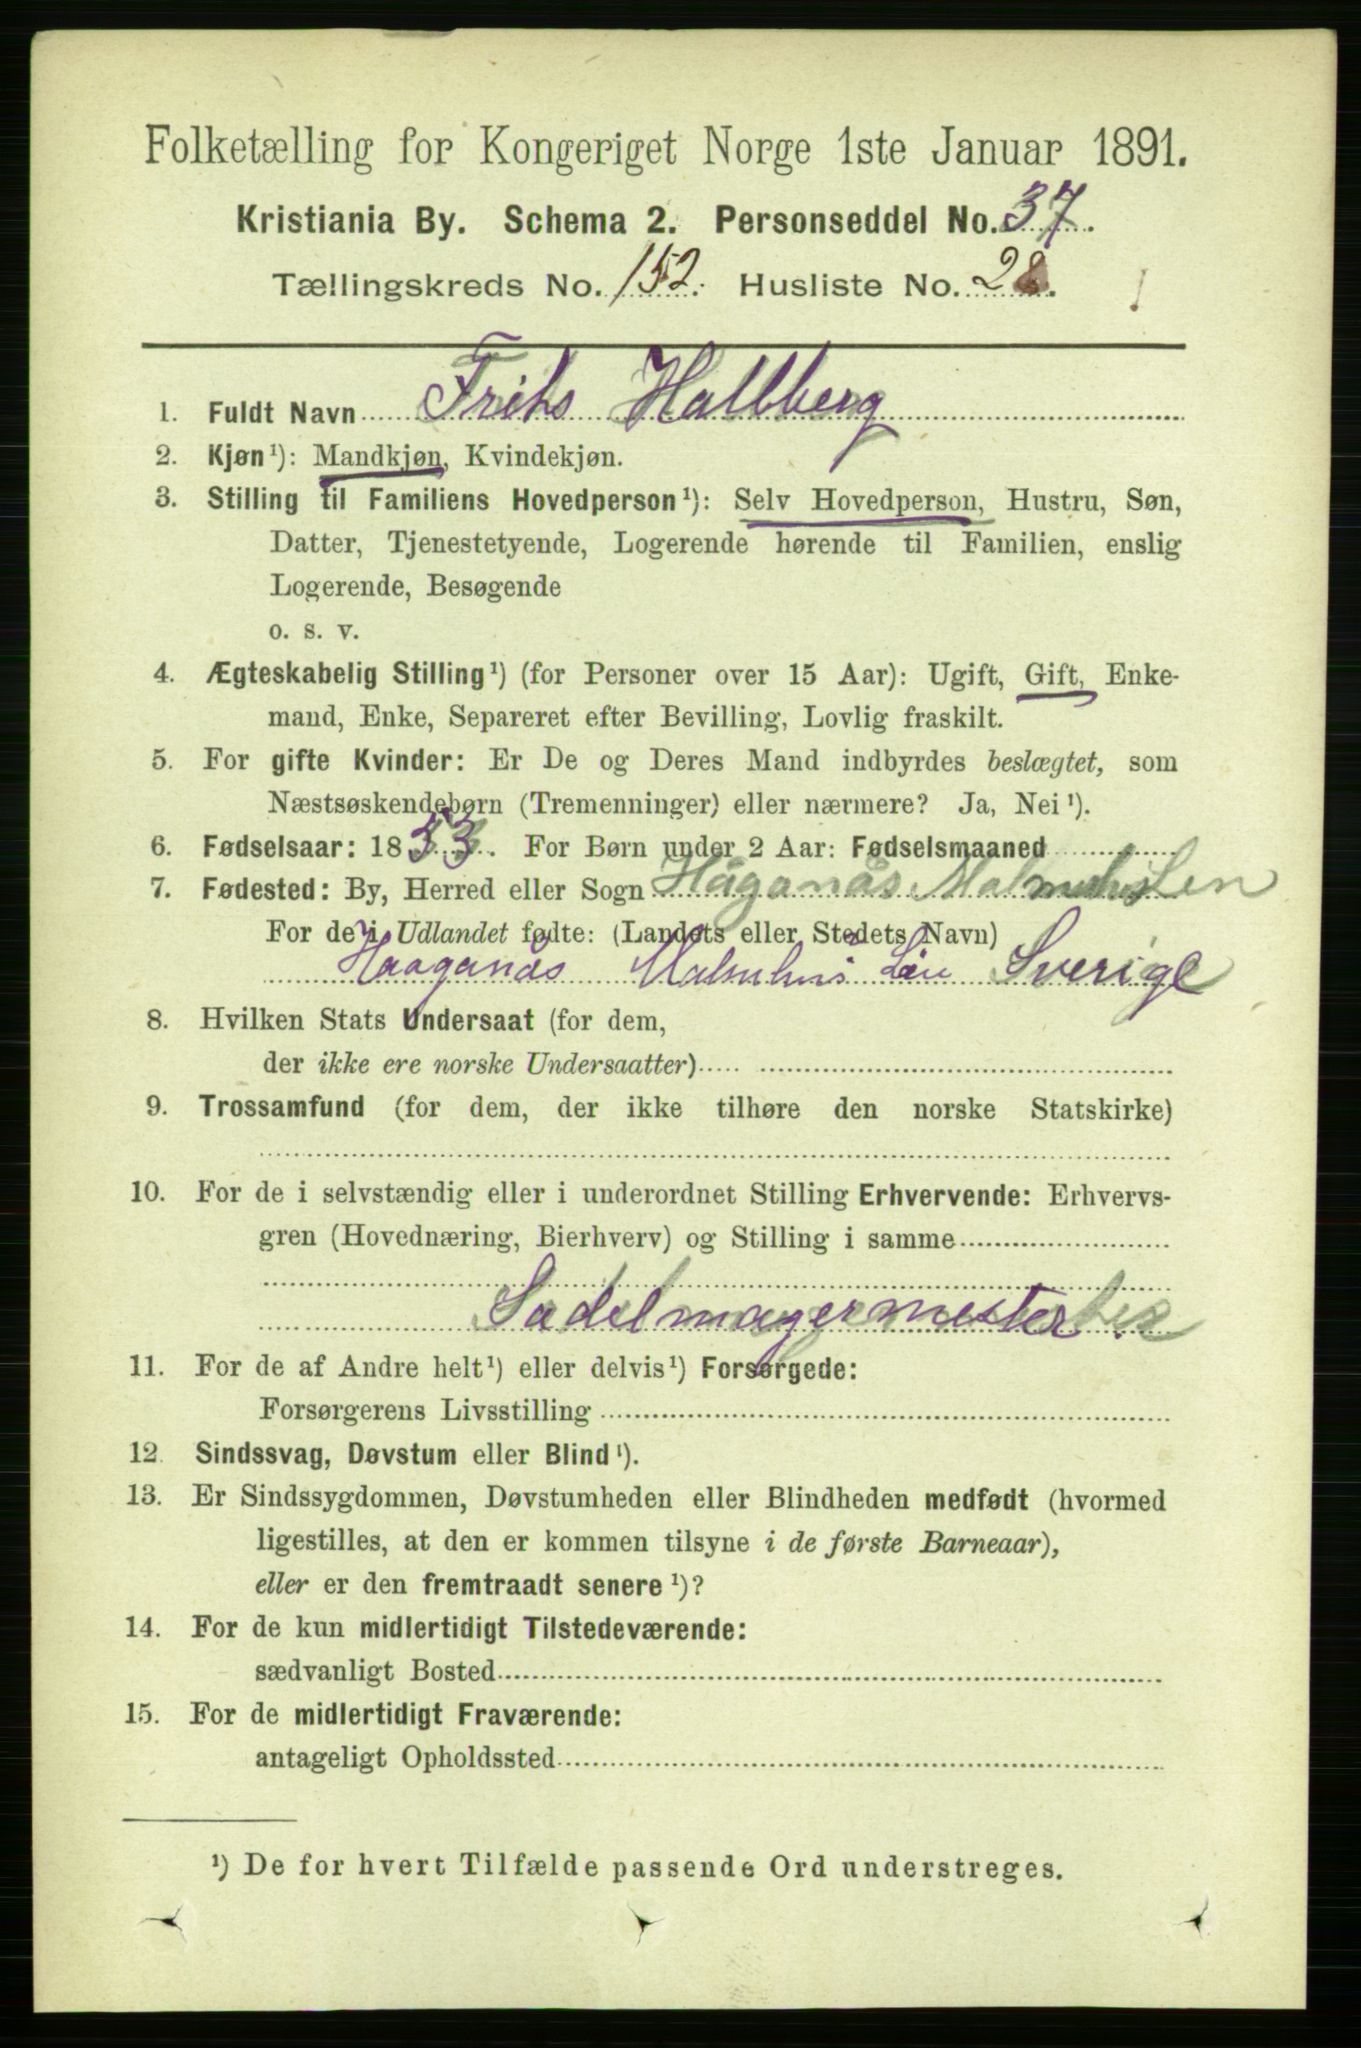 Folketælling for Kongeriget Norge 1ste Januar 1891.
Kristiania By. Schema 2. Personseddel No. 37.
Tællingskreds No. 152. Husliste No. 28.
1. Fuldt Navn Frits Hallberg
2. Kjøn¹): Mandkjøn, Kvindekjøn.
3. Stilling til Familiens Hovedperson¹): Selv Hovedperson, Hustru, Søn,
Datter, Tjenestetyende, Logerende hørende til Familien, enslig
Logerende, Besøgende
o. s. v.
4. Ægteskabelig Stilling¹) (for Personer over 15 Aar): Ugift, Gift, Enke-
mand, Enke, Separeret efter Bevilling, Lovlig fraskilt.
5. For gifte Kvinder: Er De og Deres Mand indbyrdes beslægtet, som
Næstsøskendebørn (Tremenninger) eller nærmere? Ja, Nei¹).
6. Fødselsaar: 1853. For Børn under 2 Aar: Fødselsmaaned
7. Fødested: By, Herred eller Sogn Höganäs Malmöhus Len
For de i Udlandet fødte: (Landets eller Stedets Navn)
Haaganäs Malmhus Län Sverige
8. Hvilken Stats Undersaat (for dem,
der ikke ere norske Undersaatter)
9. Trossamfund (for dem, der ikke tilhøre den norske Statskirke)
10. For de i selvstændig eller i underordnet Stilling Erhvervende: Erhvervs-
gren (Hovednæring, Bierhverv) og Stilling i samme
Sadelmagermester
11. For de af Andre helt¹) eller delvis¹) Forsørgede:
Forsørgerens Livsstilling
12. Sindssvag, Døvstum eller Blind¹).
13. Er Sindssygdommen, Døvstumheden eller Blindheden medfødt (hvormed
ligestilles, at den er kommen tilsyne i de første Barneaar),
eller er den fremtraadt senere¹)?
14. For de kun midlertidigt Tilstedeværende:
sædvanligt Bosted
15. For de midlertidigt Fraværende:
antageligt Opholdssted
¹) De for hvert Tilfælde passende Ord understreges.